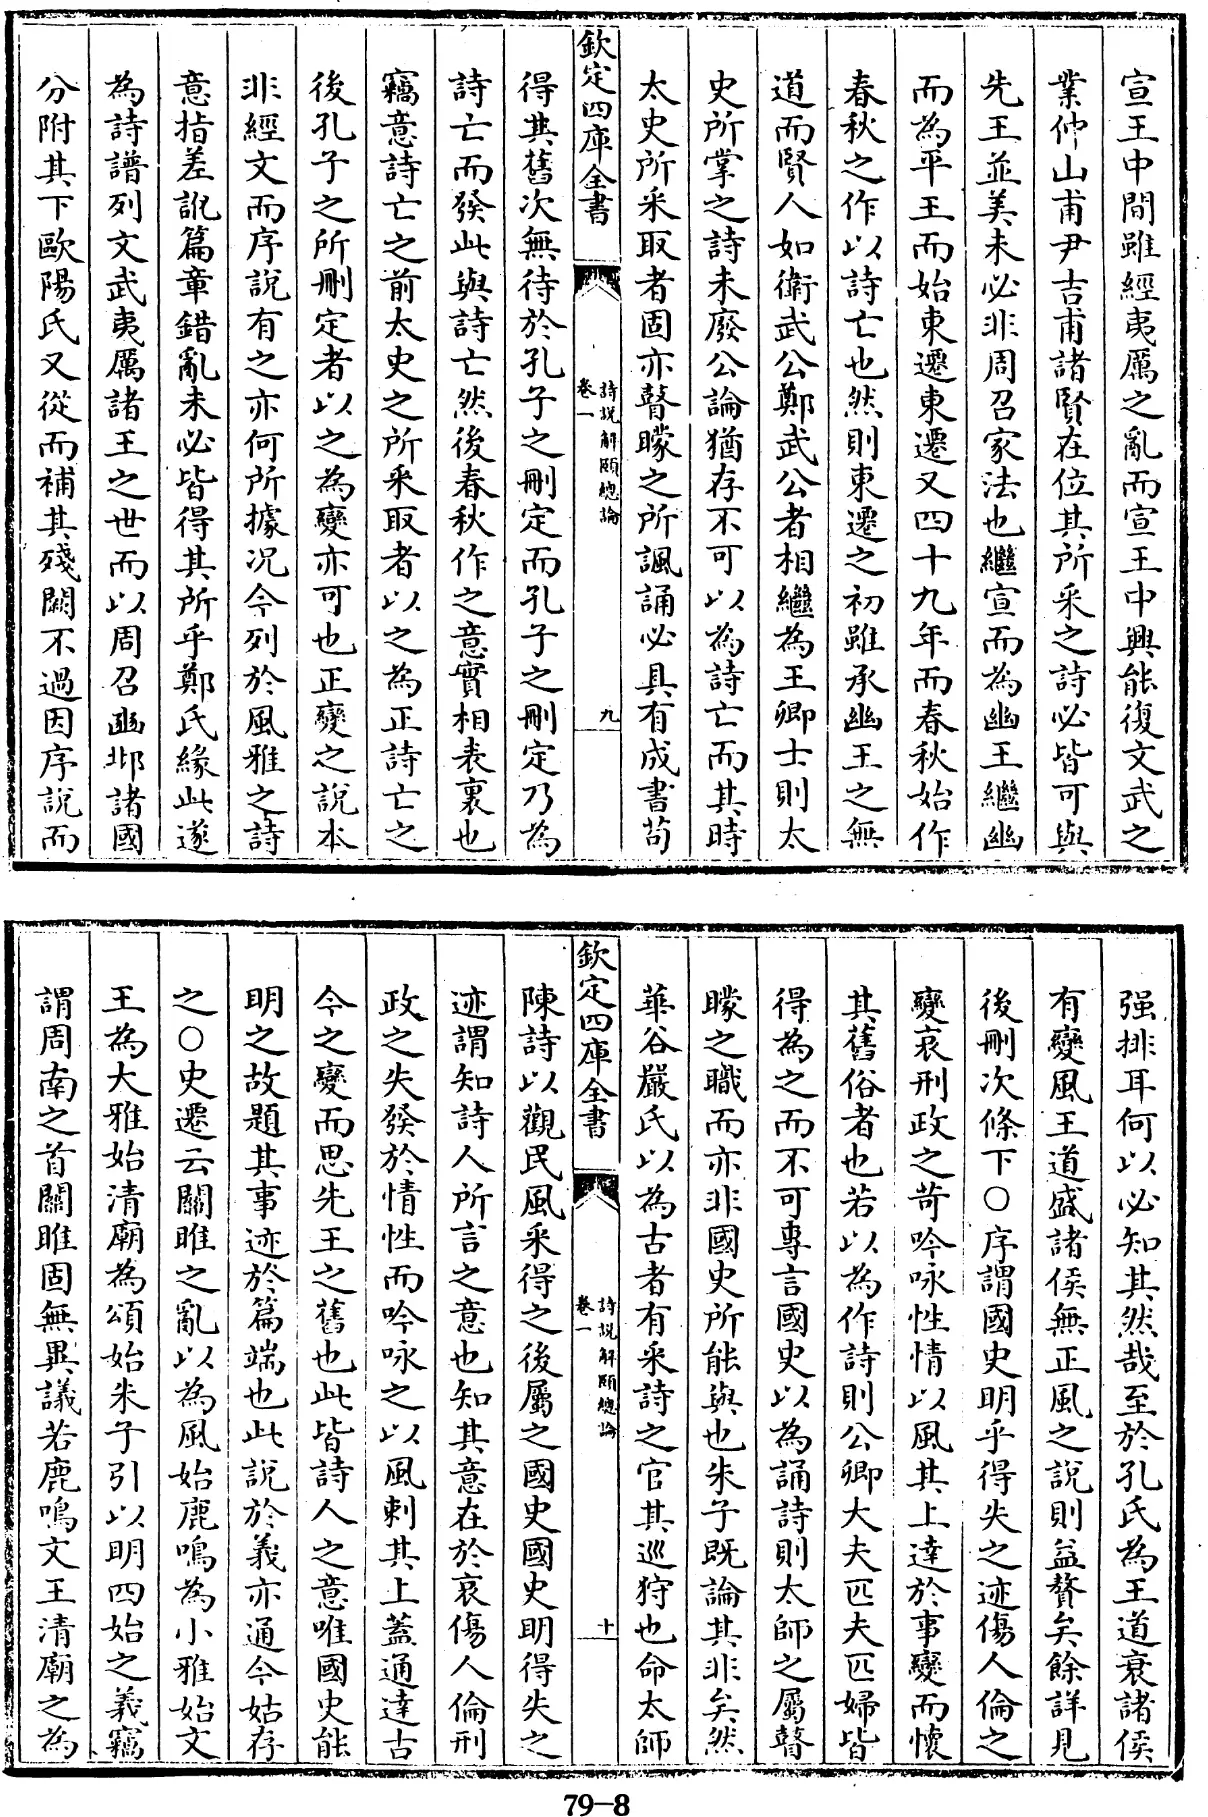 宣王中間雖經夷厲之亂而宣王中興能復文武之
業仲山甫尹吉甫諸賢在位其所采之詩必皆可與
先王並美未必非周召家法也繼宣而為幽王繼幽
而為平王而始東遷東遷又四十九年而春秋始作
春秋之作以詩亡也然則東遷之初雖承幽王之無
道而賢人如衛武公鄭武公者相繼為王卿士則太
史所掌之詩未廢公論猶存不可以為詩亡而其時
太史所采取者固亦瞽矇之所諷誦必具有成書茍
欽定四庫全書
詩說解頤總論
卷一
九
得其舊次無待於孔子之刪定而孔子之刪定乃為
詩亡而發此與詩亡然後春秋作之意實相表裏也
竊意詩亡之前太史之所采取者以之為正詩亡之
後孔子之所刪定者以之為變亦可也正變之說本
非經文而序說有之亦何所據况今列於風雅之詩
意指差訛篇章錯亂未必皆得其所乎鄭氏緣此遂
為詩譜列文武夷厲諸王之世而以周召豳邶諸國
分附其下歐陽氏又從而補其殘闕不過因序說而
强排耳何以必知其然哉至於孔氏為王道衰諸侯
有變風王道盛諸侯無正風之說則益贅矣餘詳見
後刪次條下○序謂國史明乎得失之迹傷人倫之
變哀刑政之苛吟咏性情以風其上達於事變而懷
其舊俗者也若以為作詩則公卿大夫匹夫匹婦皆
得為之而不可專言國史以為誦詩則太師之屬瞽
矇之職而亦非國史所能與也朱子既論其非矣然
華谷嚴氏以為古者有采詩之官其巡狩也命太師
欽定四庫全書
詩說解頤總論
卷一
十
陳詩以觀民風采得之後屬之國史國史明得失之
迹謂知詩人所言之意也知其意在於哀傷人倫刑
政之失發於情性而吟咏之以風刺其上蓋通達古
今之變而思先王之舊也此皆詩人之意唯國史能
明之故題其事迹於篇端也此說於義亦通今姑存
之○史遷云關雎之亂以為風始鹿鳴為小雅始文
王為大雅始清廟為頌始朱子引以明四始之義竊
謂周南之首關雎固無異議若鹿鳴文王清廟之為
79-8